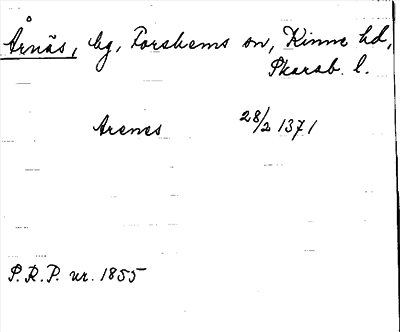 Årnäs, hg, Forshems sn, Kinne hd,
Skarab. l.
Arenes 28/2 1371
S.R.P. nr. 1855